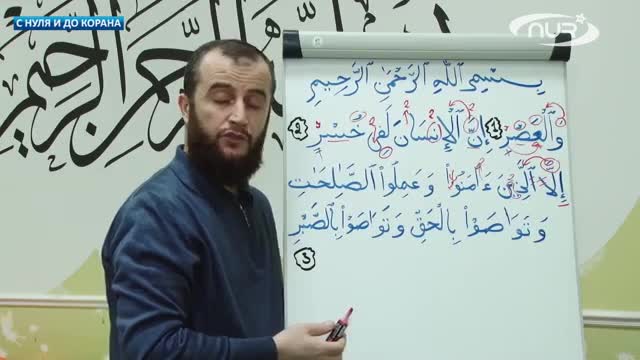 С НУЛЯ И ДО КОРАНА
NUR
بِسْمِ ٱللَّهِ ٱلرَّحْمَٰنِ ٱلرَّحِيمِ
وَٱلْعَصْرِ 1 إِنَّ ٱلْإِنسَانَ لَفِى خُسْرٍ 2
إِلَّا ٱلَّذِينَ ءَامَنُوا۟ وَعَمِلُوا۟ ٱلصَّٰلِحَٰتِ
وَتَوَاصَوْا۟ بِٱلْحَقِّ وَتَوَاصَوْا۟ بِٱلصَّبْرِ
3